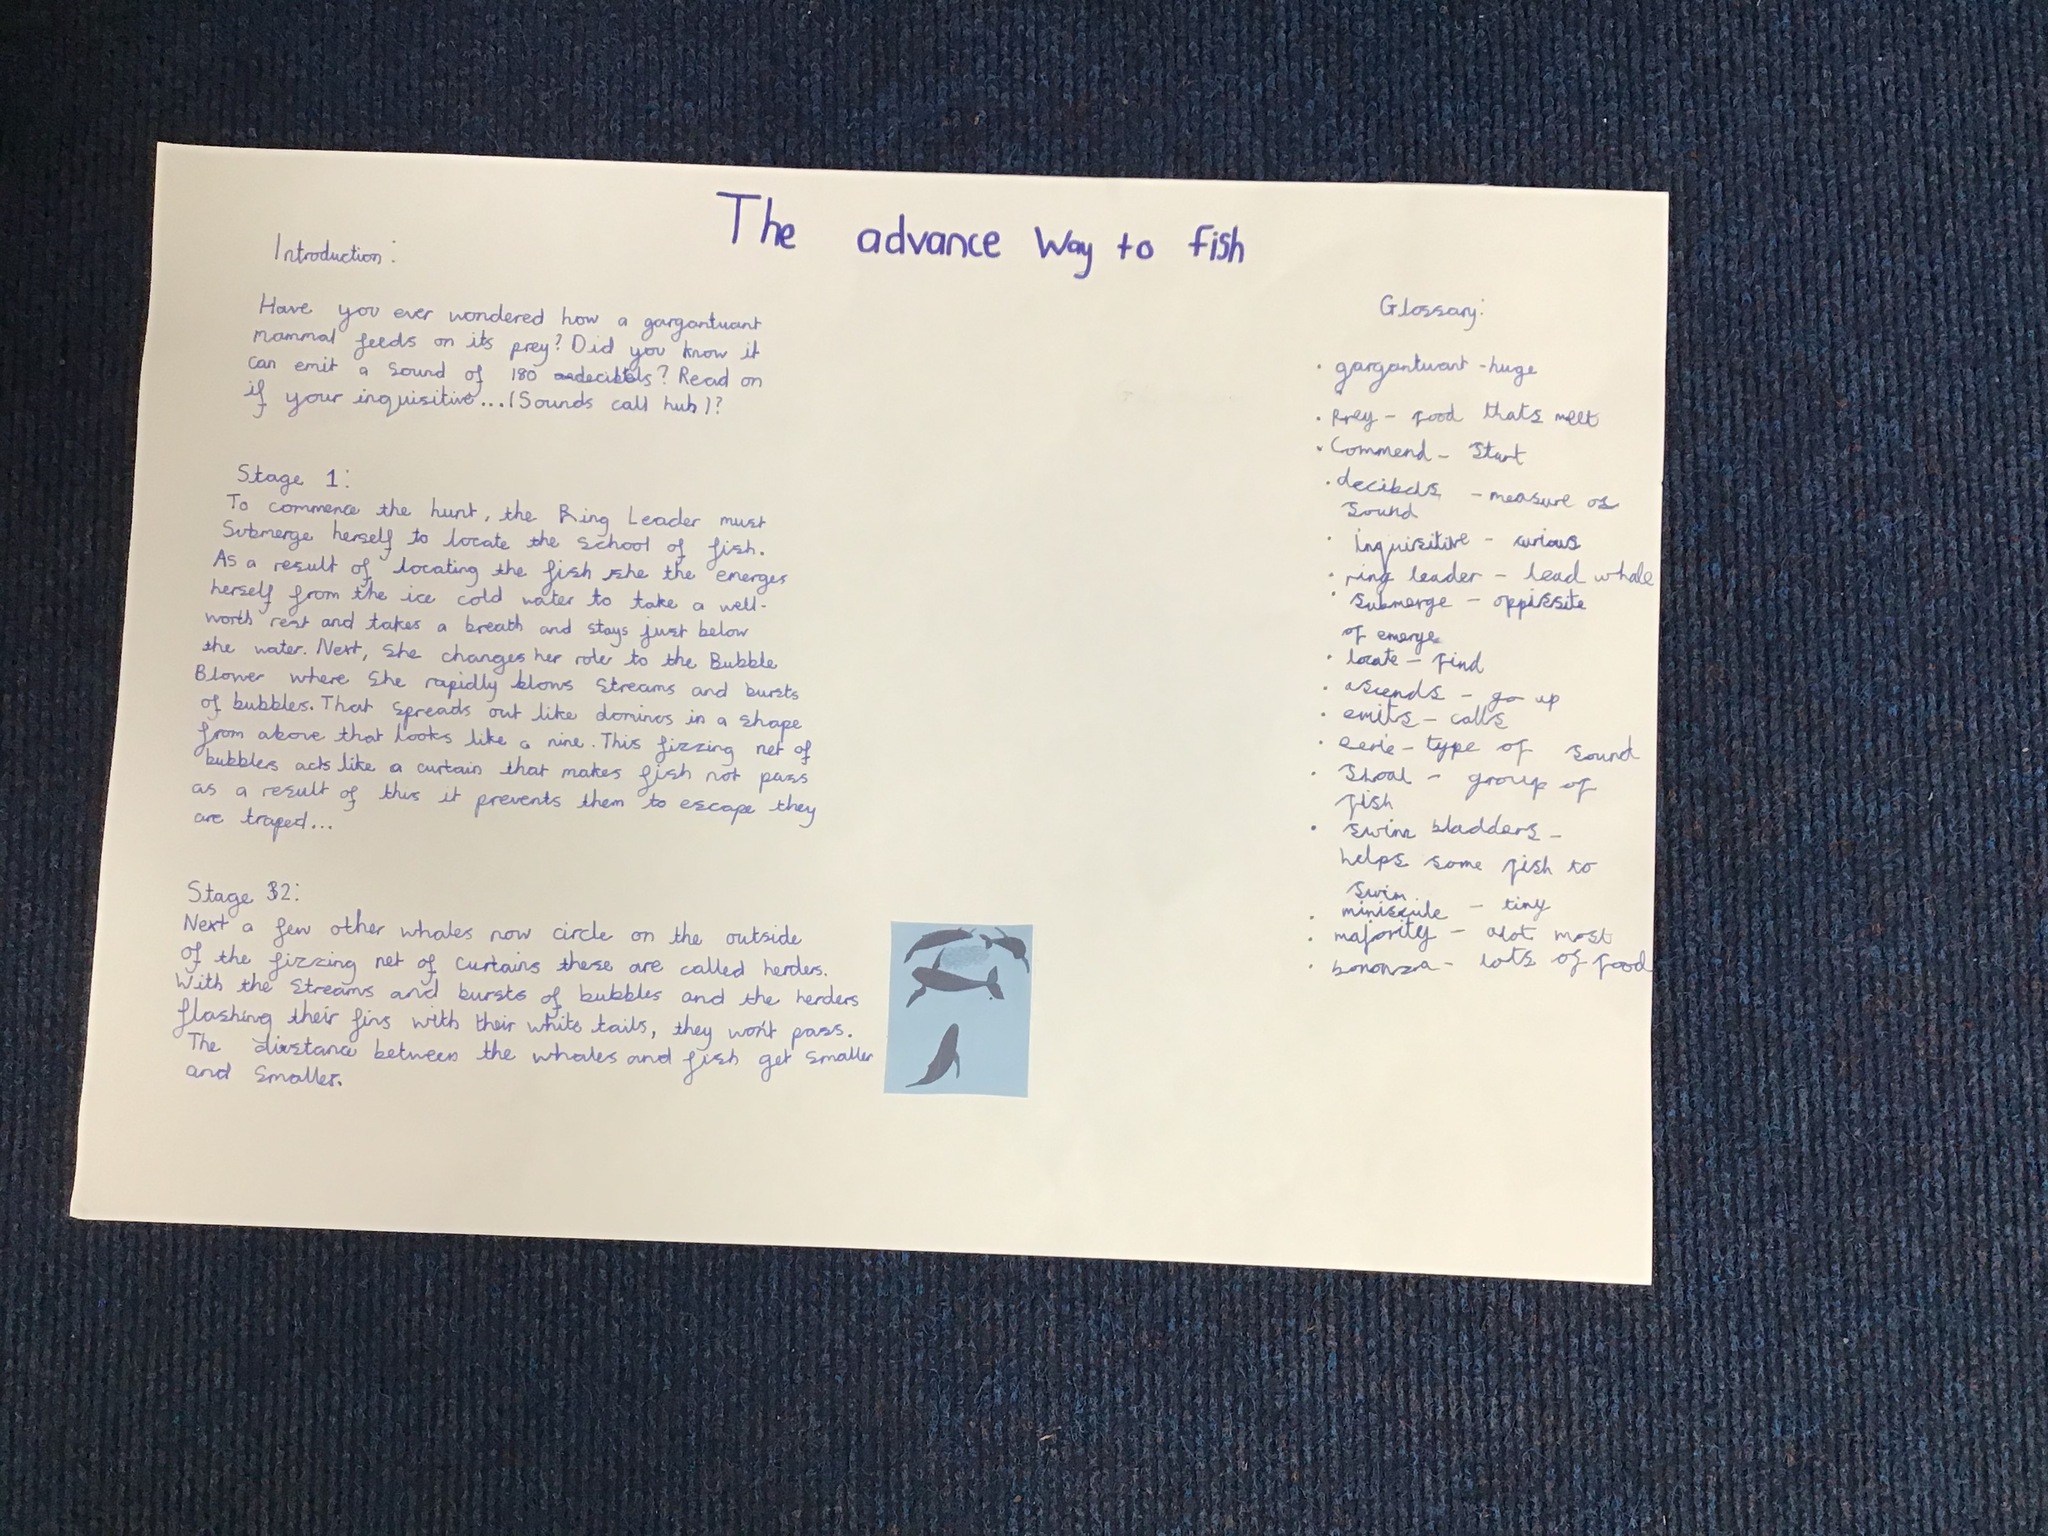 The advance Way to fish
Introduction:
Have you ever wondered how a gargantuant
mammal feeds on its prey? Did you know it
can emit a sound of 180 decibels? Read on
if your inquisitive...(Sounds call hub)?
Stage 1:
To commence the hunt, the Ring Leader must
Submerge herself to locate the school of fish.
As a result of locating the fish she the emerges
herself from the ice cold water to take a well-
worth rest and takes a breath and stays just below
the water. Next, she changes her role to the Bubble
Blower where she rapidly blows streams and bursts
of bubbles. That spreads out like dominos in a shape
from above that looks like a nine. This fizzing net of
bubbles acts like a curtain that makes fish not pass
as a result of this it prevents them to escape they
are traped...
Stage 2:
Next a few other whales now circle on the outside
of the fizzing net of curtains these are called herders.
With the streams and bursts of bubbles and the herders
flashing their fins with their white tails, they won't pass.
The distance between the whales and fish get smaller
and smaller.
Glossary:
• gargantuant - huge
• Prey - food thats melt
• Commend - Start
• decibels - measure of
sound
• inquisitive - curious
• ring leader - lead whale
• submerge - oppisite
of emerge
• locate - find
• asends - go up
• emits - calls
• eerie - type of sound
• Shoal - group of
fish
• swim bladders -
helps some fish to
swim.
• miniscule - tiny
• majority - alot most
• bononza - lots of food